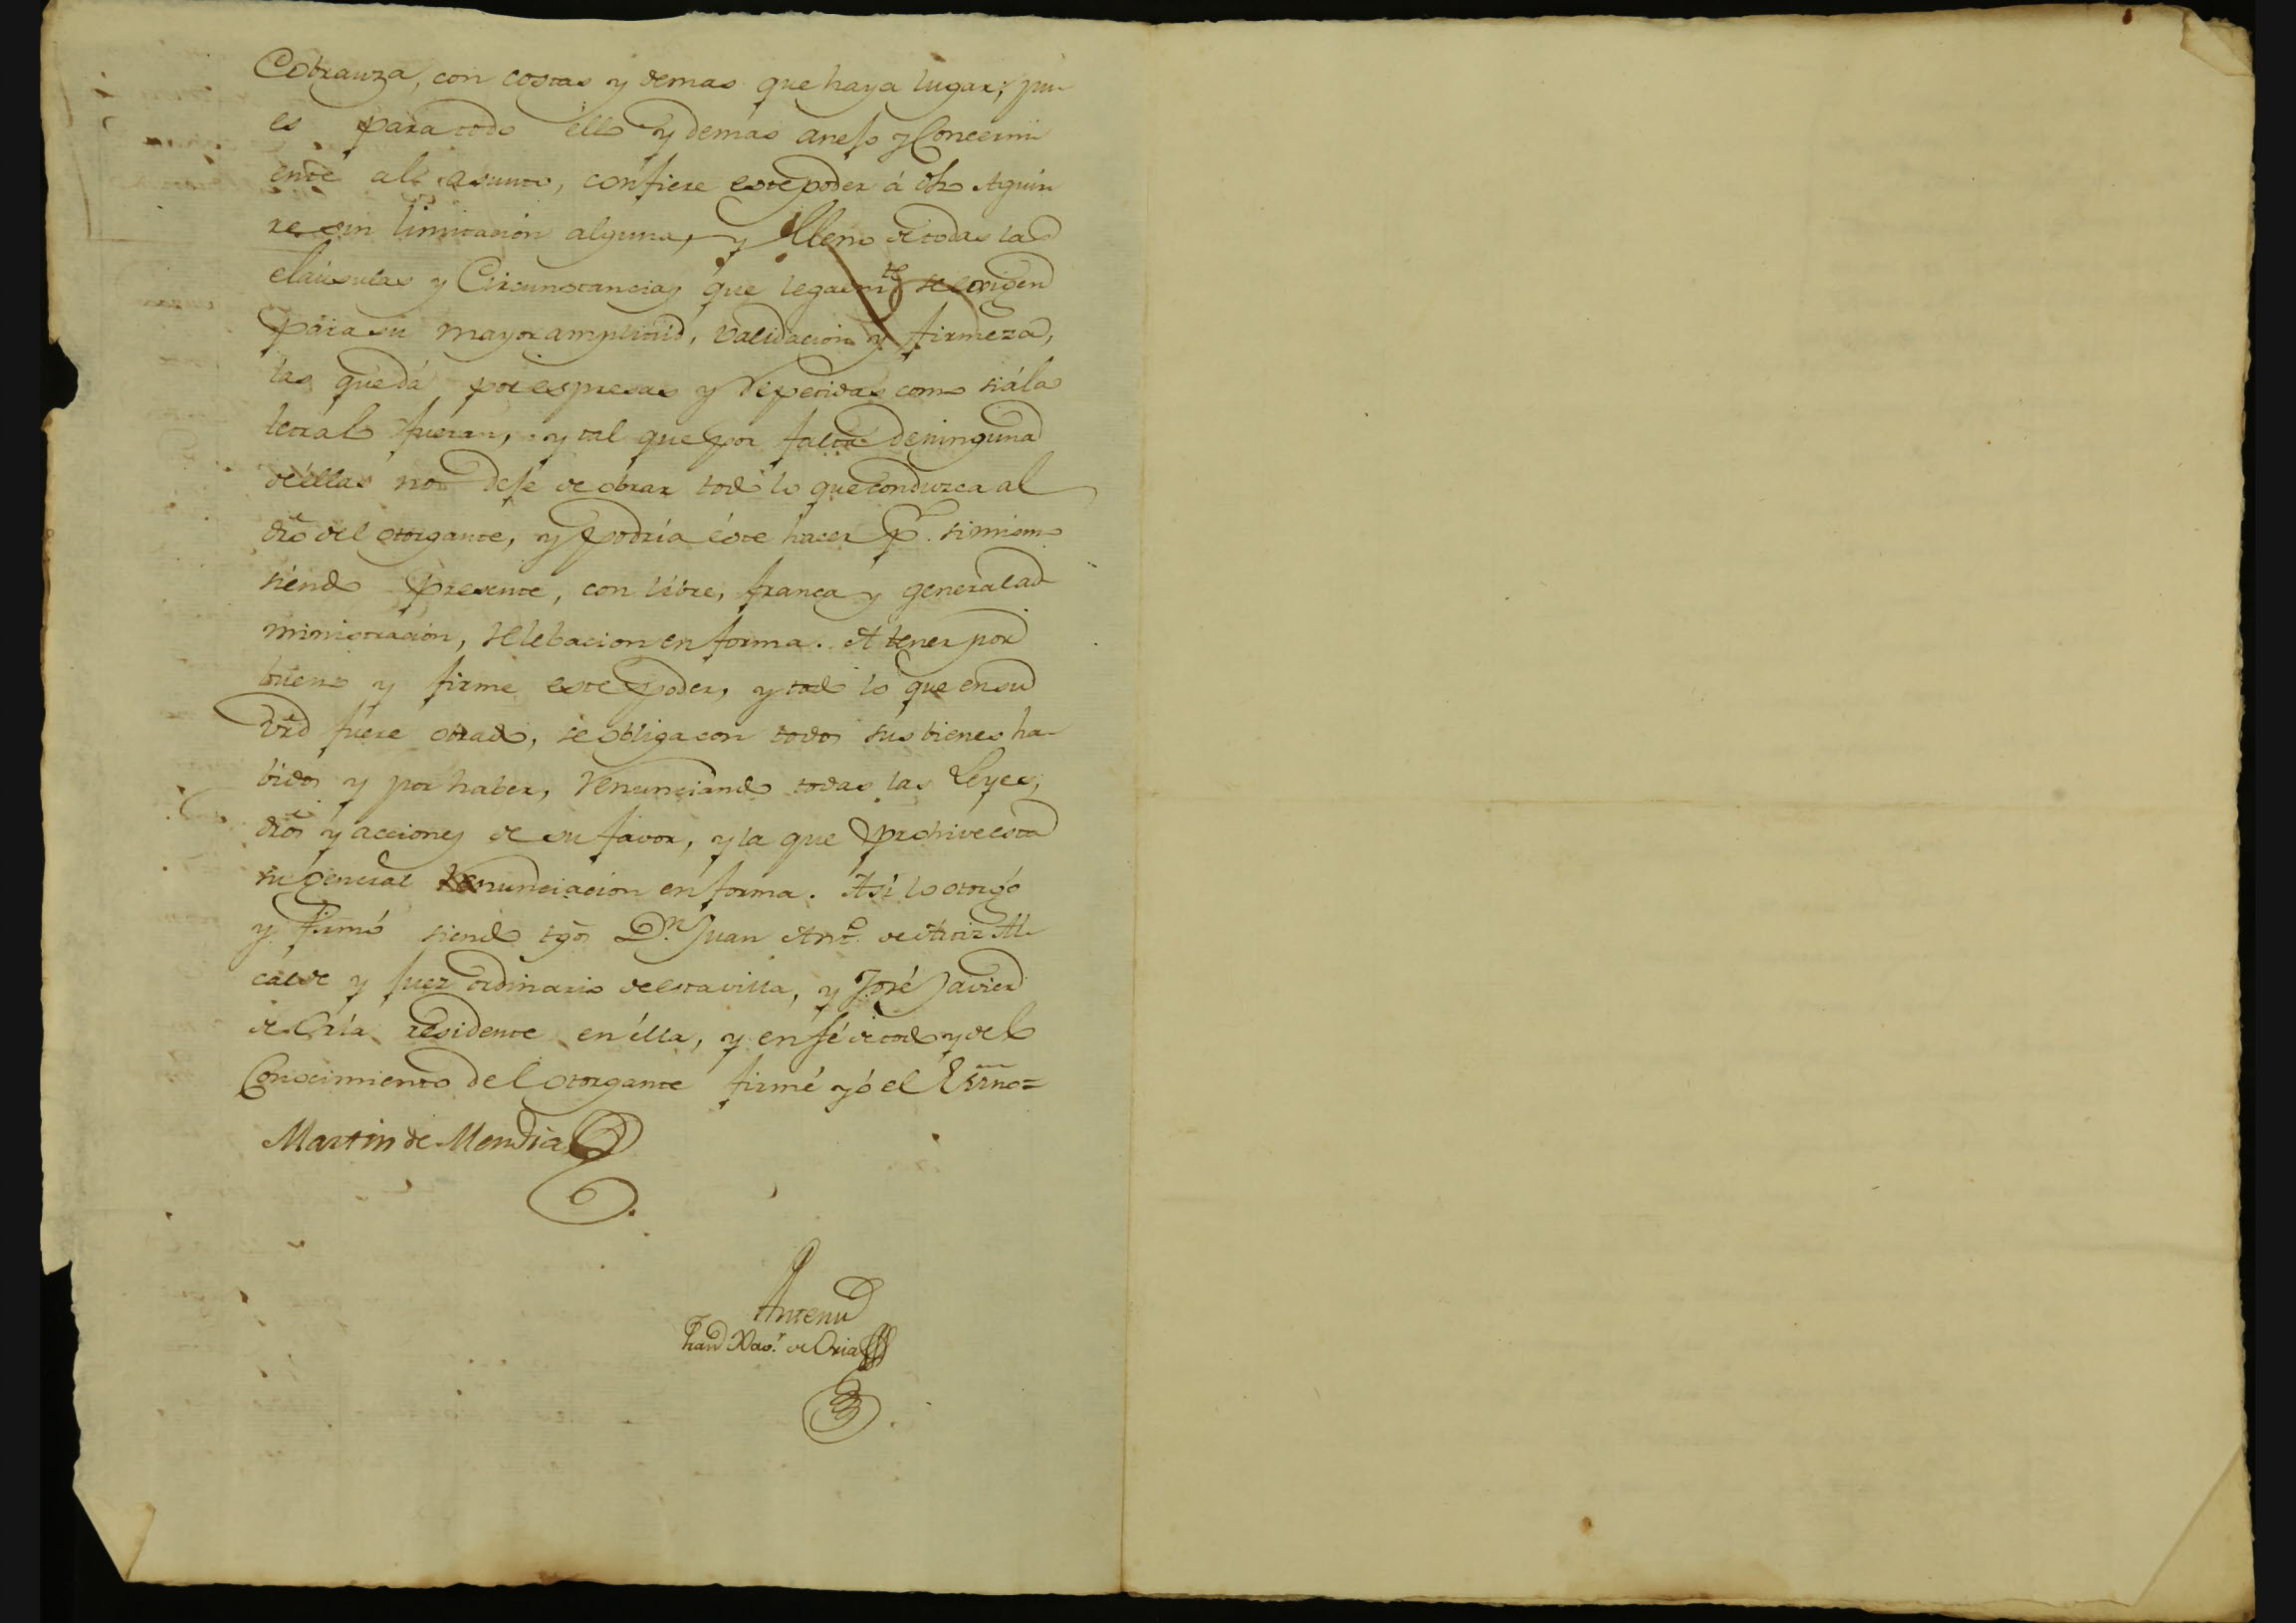 Cobranza, con costas y demas que haya lugar; pu-
es para todo ello y demás anejo y Concerni
ente al asunto, confiere este poder á dho Aguir
re sin limitación alguna, y lleno de todas las
cláusulas y Circunstancias que legalmte se exigen
para su mayor amplitud, validacion y firmeza,
las que dá por espresas y repetidas como si á la
letra lo fueran, y tal que por falta de ninguna
de éllas no deje de obrar todo lo que conduzca al
dro del otorgante, y podría éste hacer pr. si mismo
siendo presente, con libre, franca y general ad
ministración, relebacion en forma. A tener por
bueno y firme este poder, y todo lo que en su
vrd fuere obrado, se obliga con todos sus bienes ha-
bidos y por haber, renunciando todas las Leyes,
dros y acciones de su favor, y la que prohive esta
su general renunciacion en forma. Así lo otorgó
y firmó siendo tgos Dn. Juan Anto. de Al-
calde y Juez ordinario de esta villa, y José Javier
de Oria residente en élla, y en fé de todo y del
Conocimiento del otorgante firmé yó el Esrno=
Martin de Mendia
Antemi
Xavr. de Oria